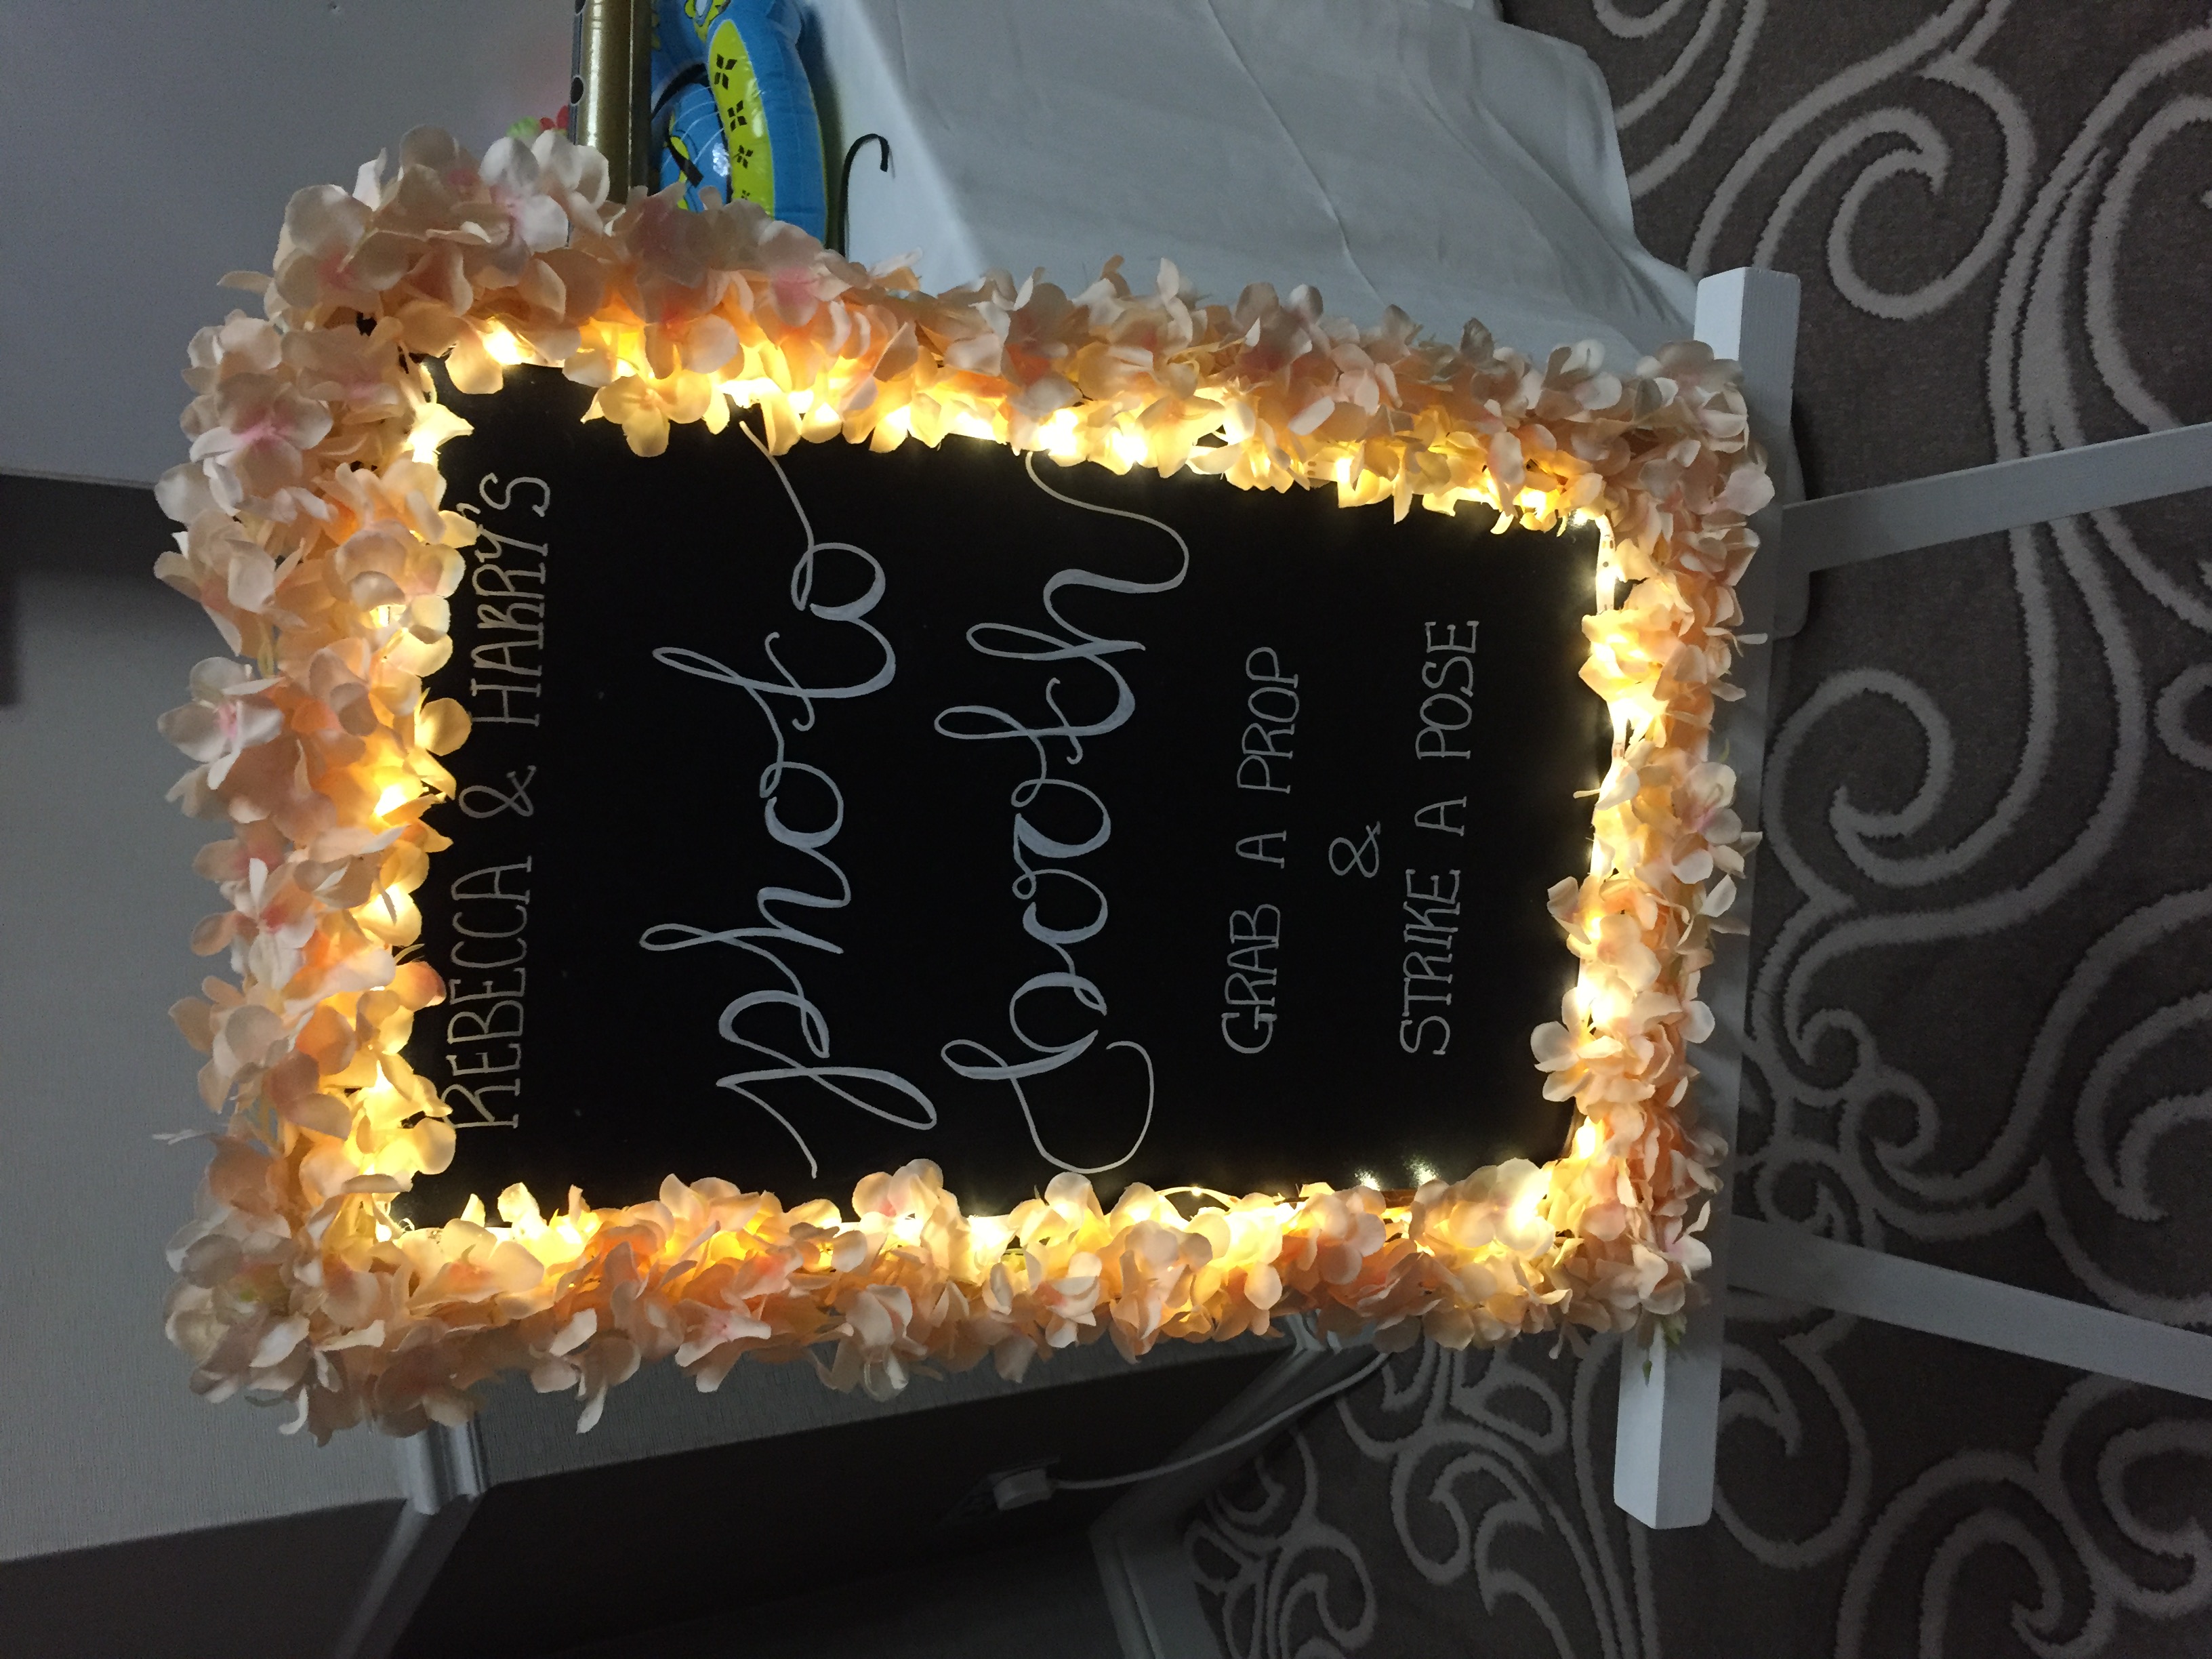 REBECCA & HARRY'S
photo
booth
GRAB A PROP
&
STRIKE A POSE